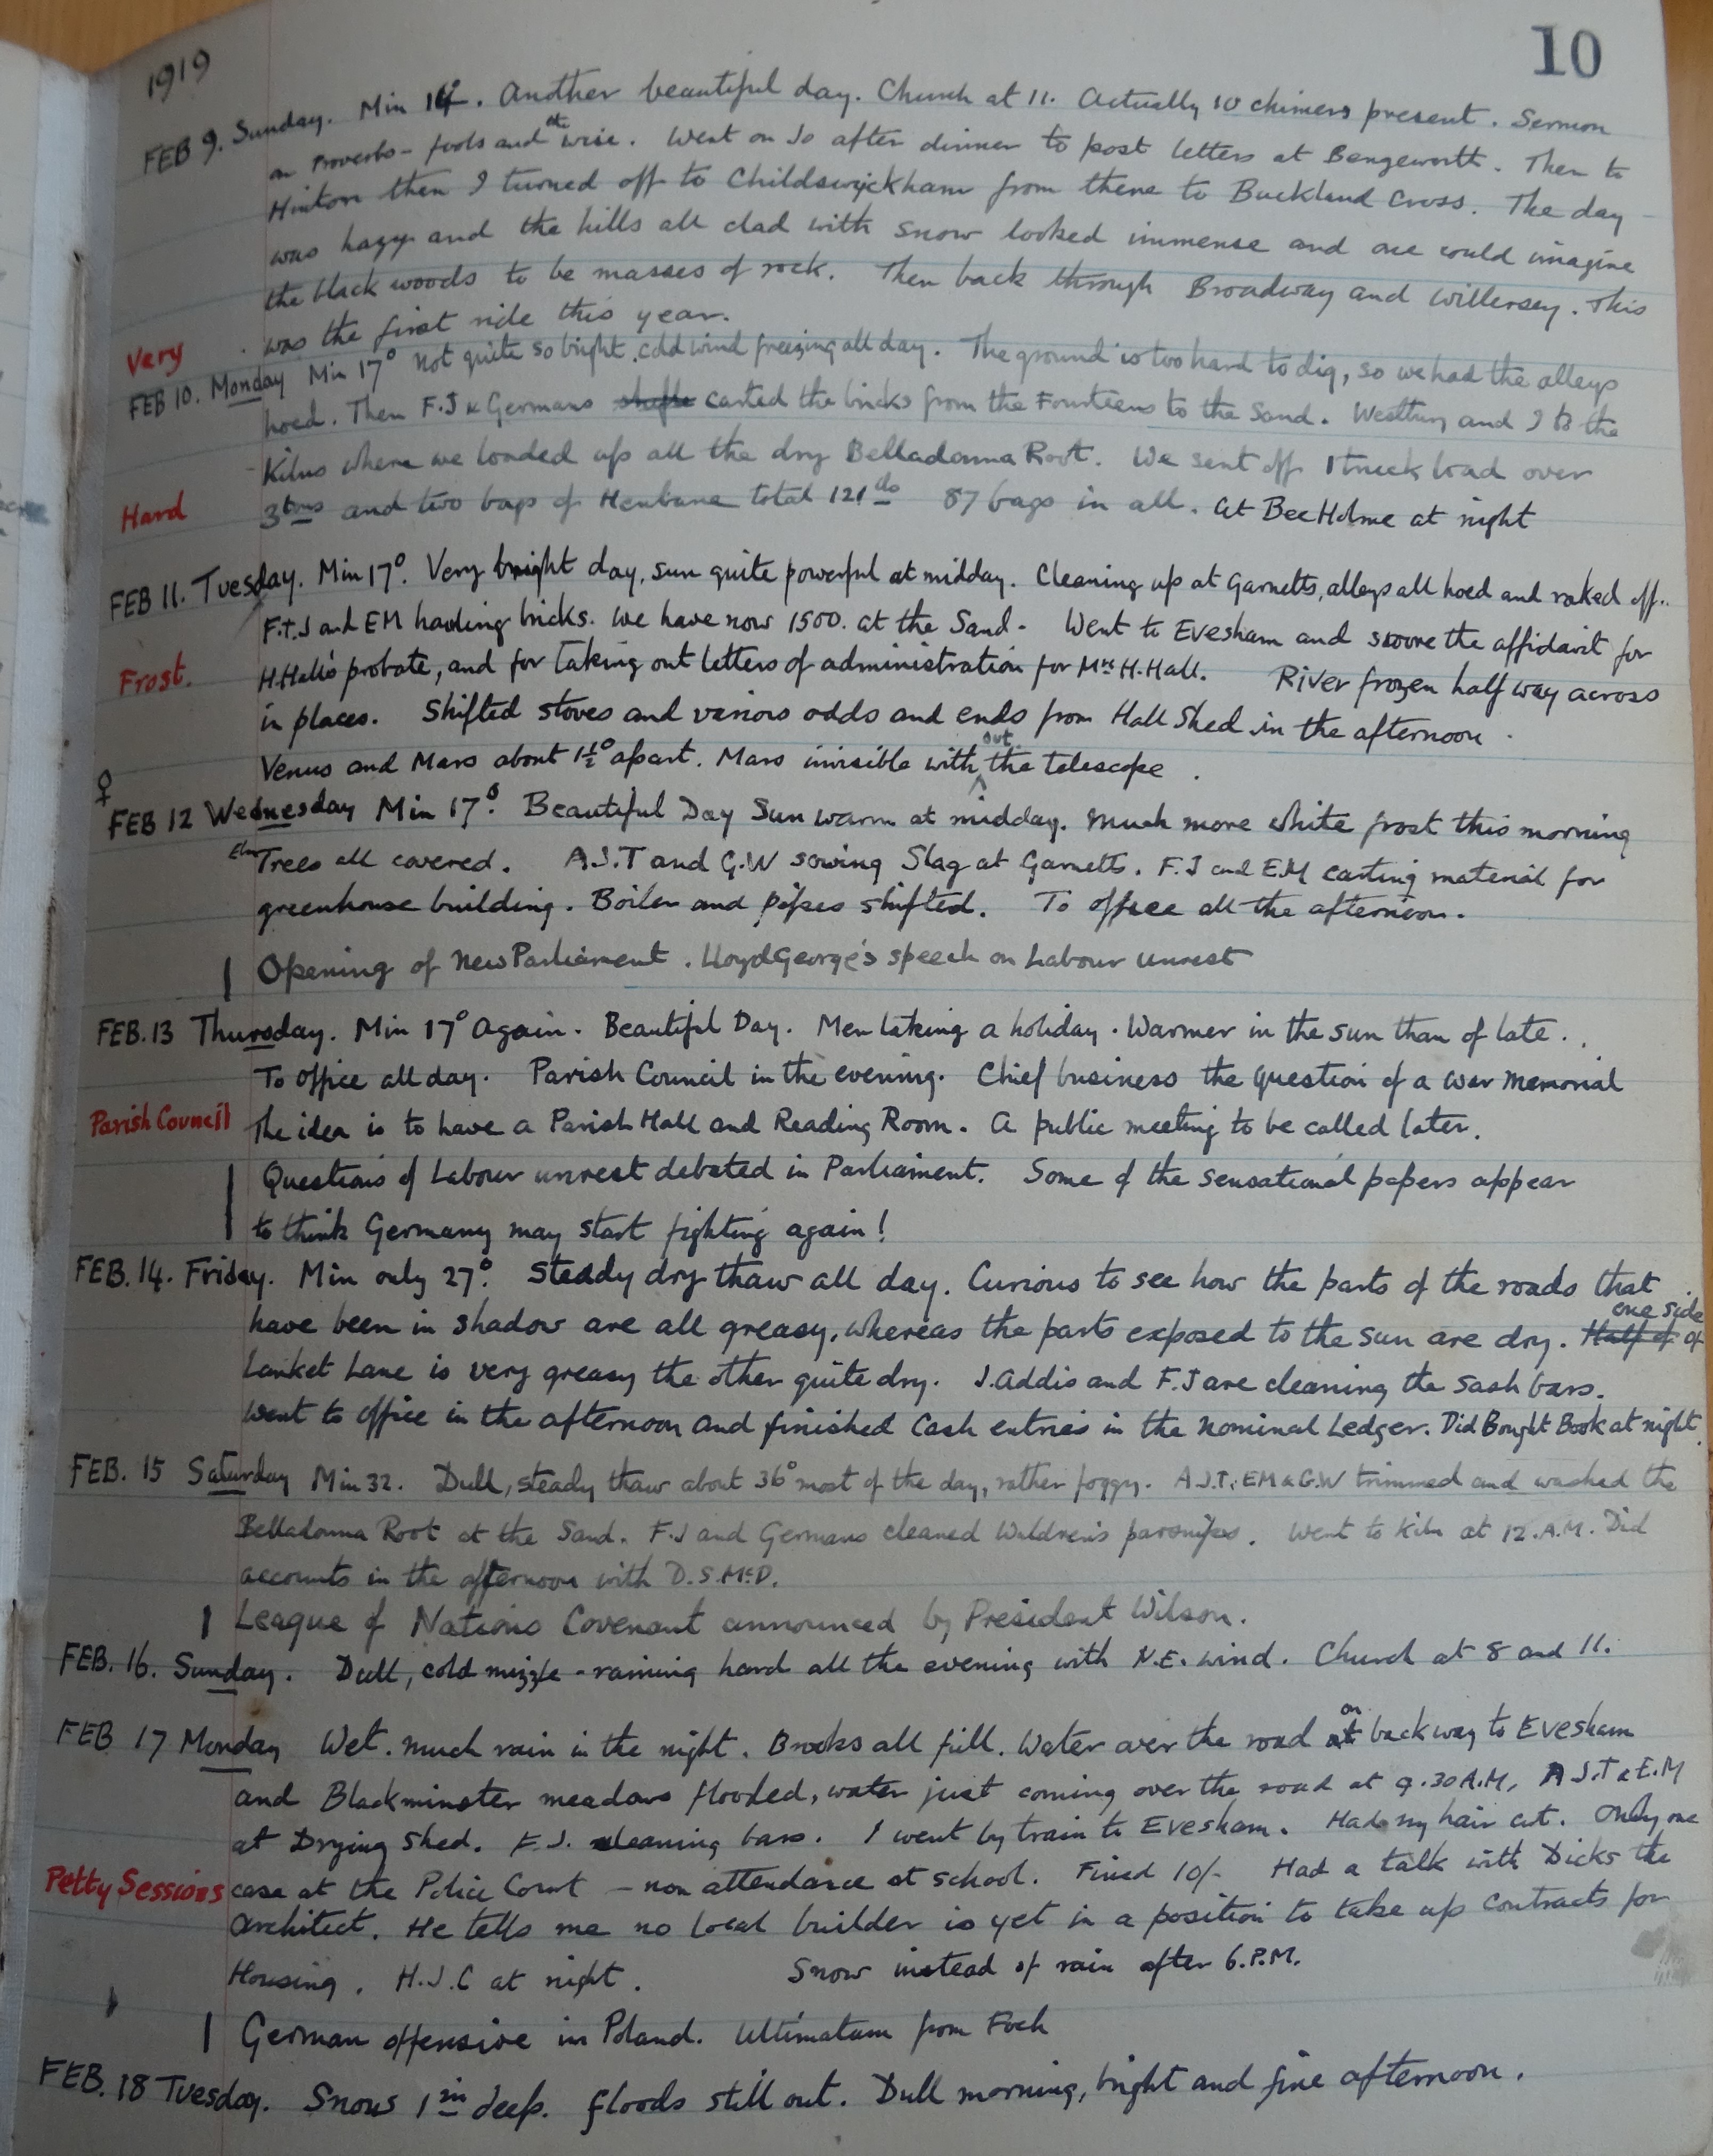 10
1919
FEB 9. Sunday. Min 14°. Another beautiful day. Church at 11. Actually 10 chimers present. Sermon
on Proverbs - fools and the wise. Went on Jo after dinner to post letters at Bengeworth. Then to
Hinton then I turned off to Childswyckham from there to Buckland Cross. The day
was hazy and the hills all clad with snow looked immense and one could imagine
the black woods to be masses of rock. Then back through Broadway and Willersey. This
was the first ride this year.
Very
FEB 10. Monday Min 17° not quite so bright, cold wind freezing all day. The ground is too hard to dig, so we had the alleys
hoed. Then F.J & Germans carted the bricks from the Fourteens to the Sand. Westbury and I to the
Kilns where we loaded up all the dry Belladonna Root. We sent off 1 truck load over
Hard
3 tons and two bags of Henbane total 121 lbs 87 bags in all. At Bee Holme at night
FEB 11. Tuesday. Min 17°. Very bright day, sun quite powerful at midday. Cleaning up at Garnetts, alleys all hoed and raked off.
F.T.J and EM hauling bricks. We have now 1500 at the Sand. Went to Evesham and swore the affidavit for
Frost.
H. Hall's probate, and for taking out letters of administration for Mrs H. Hall. River frozen half way across
in places. Shifted stoves and various odds and ends from Hall Shed in the afternoon.
Venus and Mars about 1½° apart. Mars invisible without the telescope.
♀
FEB 12 Wednesday Min 17°. Beautiful Day Sun warm at midday. Much more white frost this morning
Elm Trees all covered. A.J.T and G.W sowing Slag at Garnetts. F.J and E.M carting material for
greenhouse building. Boiler and pipes shifted. To office all the afternoon.
Opening of New Parliament. Lloyd George's speech on Labour unrest
FEB. 13 Thursday. Min 17° Again. Beautiful Day. Men taking a holiday. Warmer in the sun than of late.
To office all day. Parish Council in the evening. Chief business the question of a war memorial
Parish Council
The idea is to have a Parish Hall and Reading Room. A public meeting to be called later.
Questions of Labour unrest debated in Parliament. Some of the sensational papers appear
to think Germany may start fighting again!
FEB. 14. Friday. Min only 27°. Steady dry thaw all day. Curious to see how the parts of the roads that
have been in shadow are all greasy, whereas the parts exposed to the sun are dry. Half of one side of
Lanket Lane is very greasy the other quite dry. J. Addis and F.J are cleaning the sash bars.
Went to office in the afternoon and finished Cash entries in the Nominal Ledger. Did Bought Book at night.
FEB. 15 Saturday Min 32. Dull, steady thaw about 36° most of the day, rather foggy. A.J.T, EM & G.W trimmed and washed the
Belladonna Root at the Sand. F.J and Germans cleaned Waldren's parsnips. Went to kiln at 12. A.M. Did
accounts in the afternoon with D.S.McD.
League of Nations Covenant announced by President Wilson.
FEB. 16. Sunday. Dull, cold mizzle - raining hard all the evening with N.E. wind. Church at 8 and 11.
FEB 17 Monday Wet. Much rain in the night. Brooks all full. Water over the road at on back way to Evesham
and Blackminster meadows flooded, water just coming over the road at 9.30 A.M. A J.T & E.M
at Drying Shed. F.J. cleaning bars. I went by train to Evesham. Had my hair cut. Only one
Petty Sessions
case at the Police Court - non attendance at school. Fined 10/- Had a talk with Dicks the
Architect. He tells me no local builder is yet in a position to take up contracts for
Housing. H.J.C at night. Snow instead of rain after 6. P.M.
German offensive in Poland. Ultimatum from Foch
FEB. 18 Tuesday. Snow 1 in deep. Floods still out. Dull morning, bright and fine afternoon.